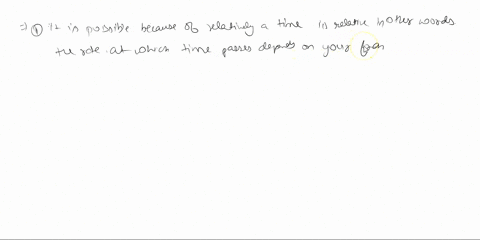 ⇒ ① it is possible because of relatively a time is relative in other words
the rate at which time passes depends on your fram